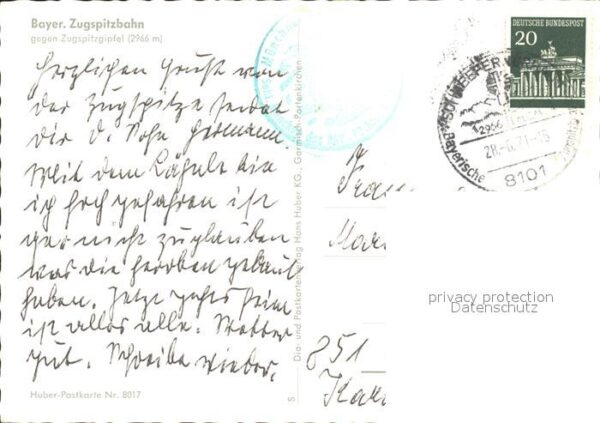 Bayer. Zugspitzbahn
gegen Zugspitzgipfel (2966 m)
Herzlichen Gruß von
der Zugspitze sendet
dir d. Sohn Hermann.
Mit dem Lähnle bin
ich hoch gefahren ist
gar nicht zu glauben
was die heroben gebaut
haben. Jetzt gehts heim
ist alles alle. Wetter
gut. Schreibe wieder.
Huber-Postkarte Nr. 8017
S Dia- und Postkartenverlag Hans Huber KG., Garmisch-Partenkirchen
München
DEUTSCHE BUNDESPOST
20
2966
28.-6.71-15
Bayerische
8101
Frau
Mar
851
privacy protection
Datenschutz